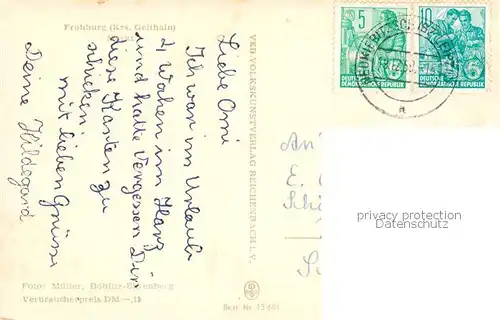 Frohburg (Krs. Geithain)
Liebe Omi
Ich war im Urlaub
2 Wochen im Harz
und hatte vergessen Dir
diese Karten zu
schicken.
mit lieben Grüssen
Deine Hildegard
Foto: Müller, Böhlitz-Ehrenberg
Verbraucherpreis DM —,15
VEB VOLKSKUNSTVERLAG REICHENBACH I. V.
Best. Nr.
5
DEUTSCHE
DEMOKRATISCHE REPUBLIK
10
DEUTSCHE
DEMOKRATISCHE REPUBLIK
An
E.
privacy protection
Datenschutz